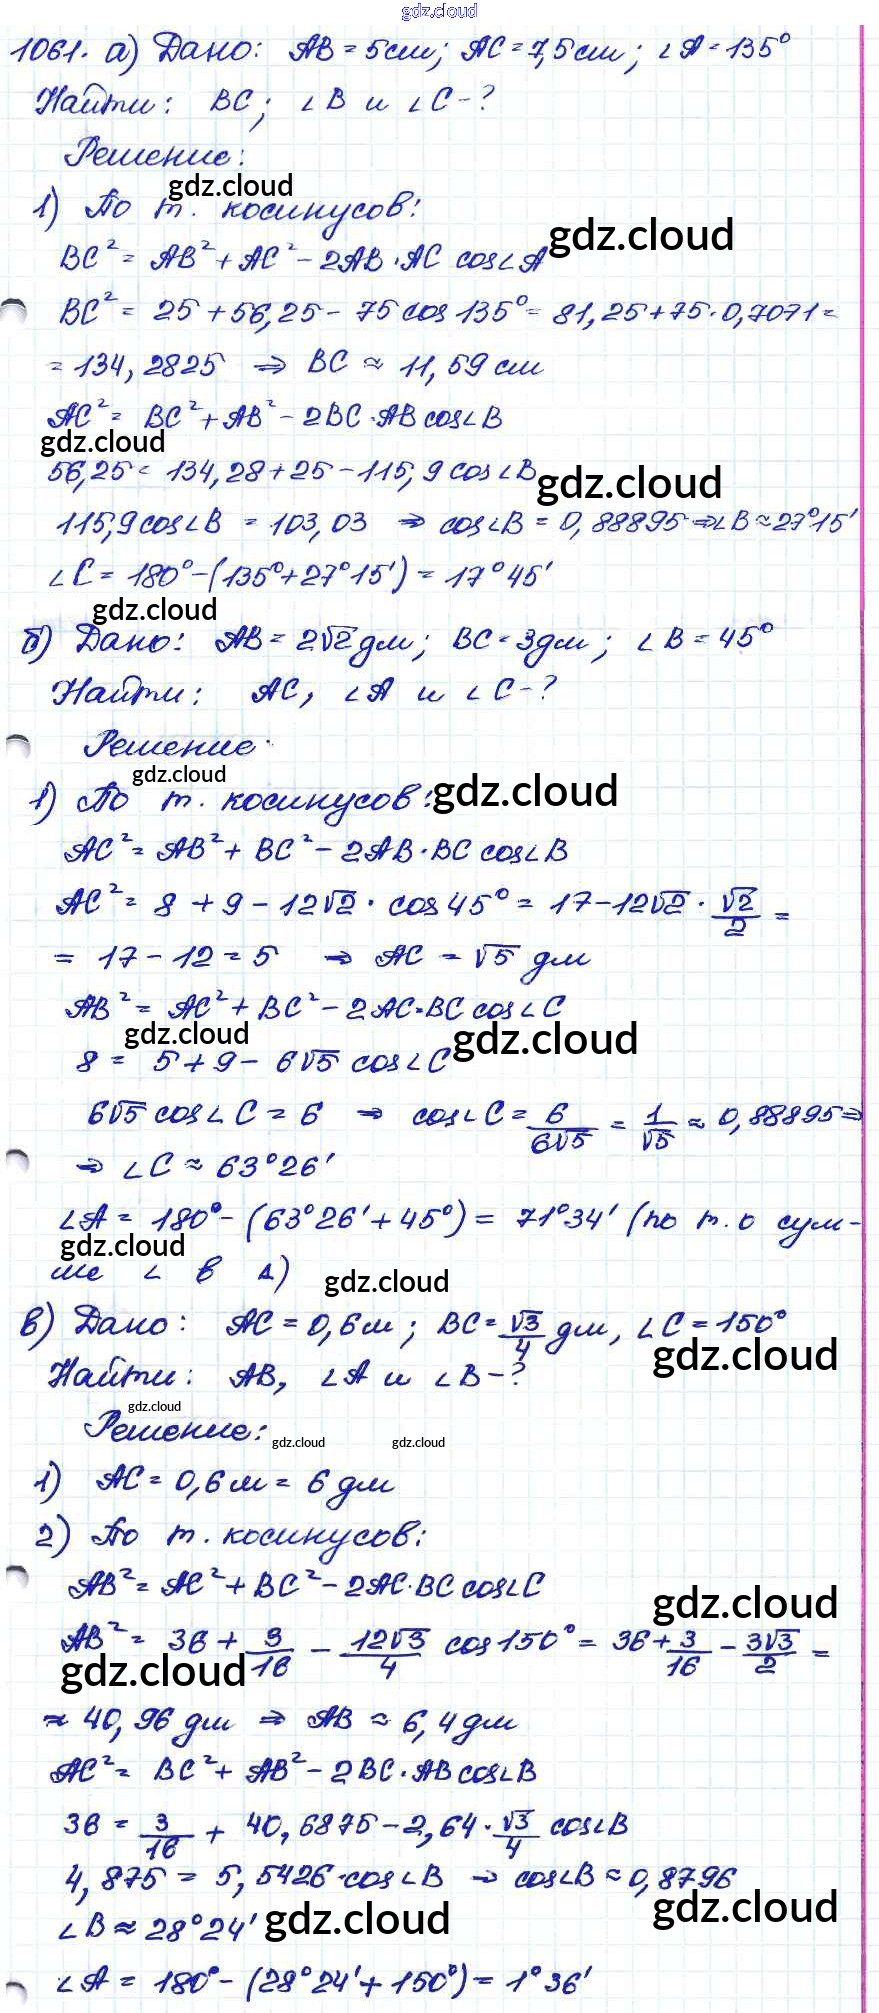 gdz.cloud
1061. а) Дано: AB = 5см; AC = 7,5см; ∠A = 135°
Найти: BC; ∠B и ∠C - ?
Решение:
gdz.cloud
1) По т. косинусов:
gdz.cloud
BC² = AB² + AC² - 2AB·AC cos∠A
BC² = 25 + 56,25 - 75 cos 135° = 81,25 + 75·0,7071 =
= 134,2825 ⇒ BC ≈ 11,59 см
AC² = BC² + AB² - 2BC·AB cos∠B
gdz.cloud
56,25 = 134,28 + 25 - 115,9 cos∠B
gdz.cloud
115,9 cos∠B = 103,03 ⇒ cos∠B = 0,88895 ⇒ ∠B ≈ 27°15'
∠C = 180° - (135° + 27°15') = 17°45'
gdz.cloud
б) Дано: AB = 2√2 дм; BC = 3дм; ∠B = 45°
Найти: AC, ∠A и ∠C - ?
Решение:
gdz.cloud
1) По т. косинусов:
gdz.cloud
AC² = AB² + BC² - 2AB·BC cos∠B
AC² = 8 + 9 - 12√2 · cos 45° = 17 - 12√2 · √2/2 =
= 17 - 12 = 5 ⇒ AC = √5 дм
AB² = AC² + BC² - 2AC·BC cos∠C
gdz.cloud
gdz.cloud
8 = 5 + 9 - 6√5 cos∠C
6√5 cos∠C = 6 ⇒ cos∠C = 6/6√5 = 1/√5 ≈ 0,88895 ⇒
⇒ ∠C ≈ 63°26'
∠A = 180° - (63°26' + 45°) = 71°34' (по т. о сум-
gdz.cloud
ме ∠ в Δ)
gdz.cloud
в) Дано: AC = 0,6м; BC = √3/4 дм, ∠C = 150°
gdz.cloud
Найти: AB, ∠A и ∠B - ?
gdz.cloud
Решение:
gdz.cloud
gdz.cloud
1) AC = 0,6м = 6 дм
2) По т. косинусов:
AB² = AC² + BC² - 2AC·BC cos∠C
gdz.cloud
AB² = 36 + 3/16 - 12√3/4 cos 150° = 36 + 3/16 - 3√3/2 =
gdz.cloud
≈ 40,96 дм ⇒ AB ≈ 6,4 дм
AC² = BC² + AB² - 2BC·AB cos∠B
36 = 3/16 + 40,6875 - 2,64 · √3/4 cos∠B
4,875 = 5,5426·cos∠B ⇒ cos∠B ≈ 0,8796
gdz.cloud
∠B ≈ 28°24'
gdz.cloud
∠A = 180° - (28°24' + 150°) = 1°36'